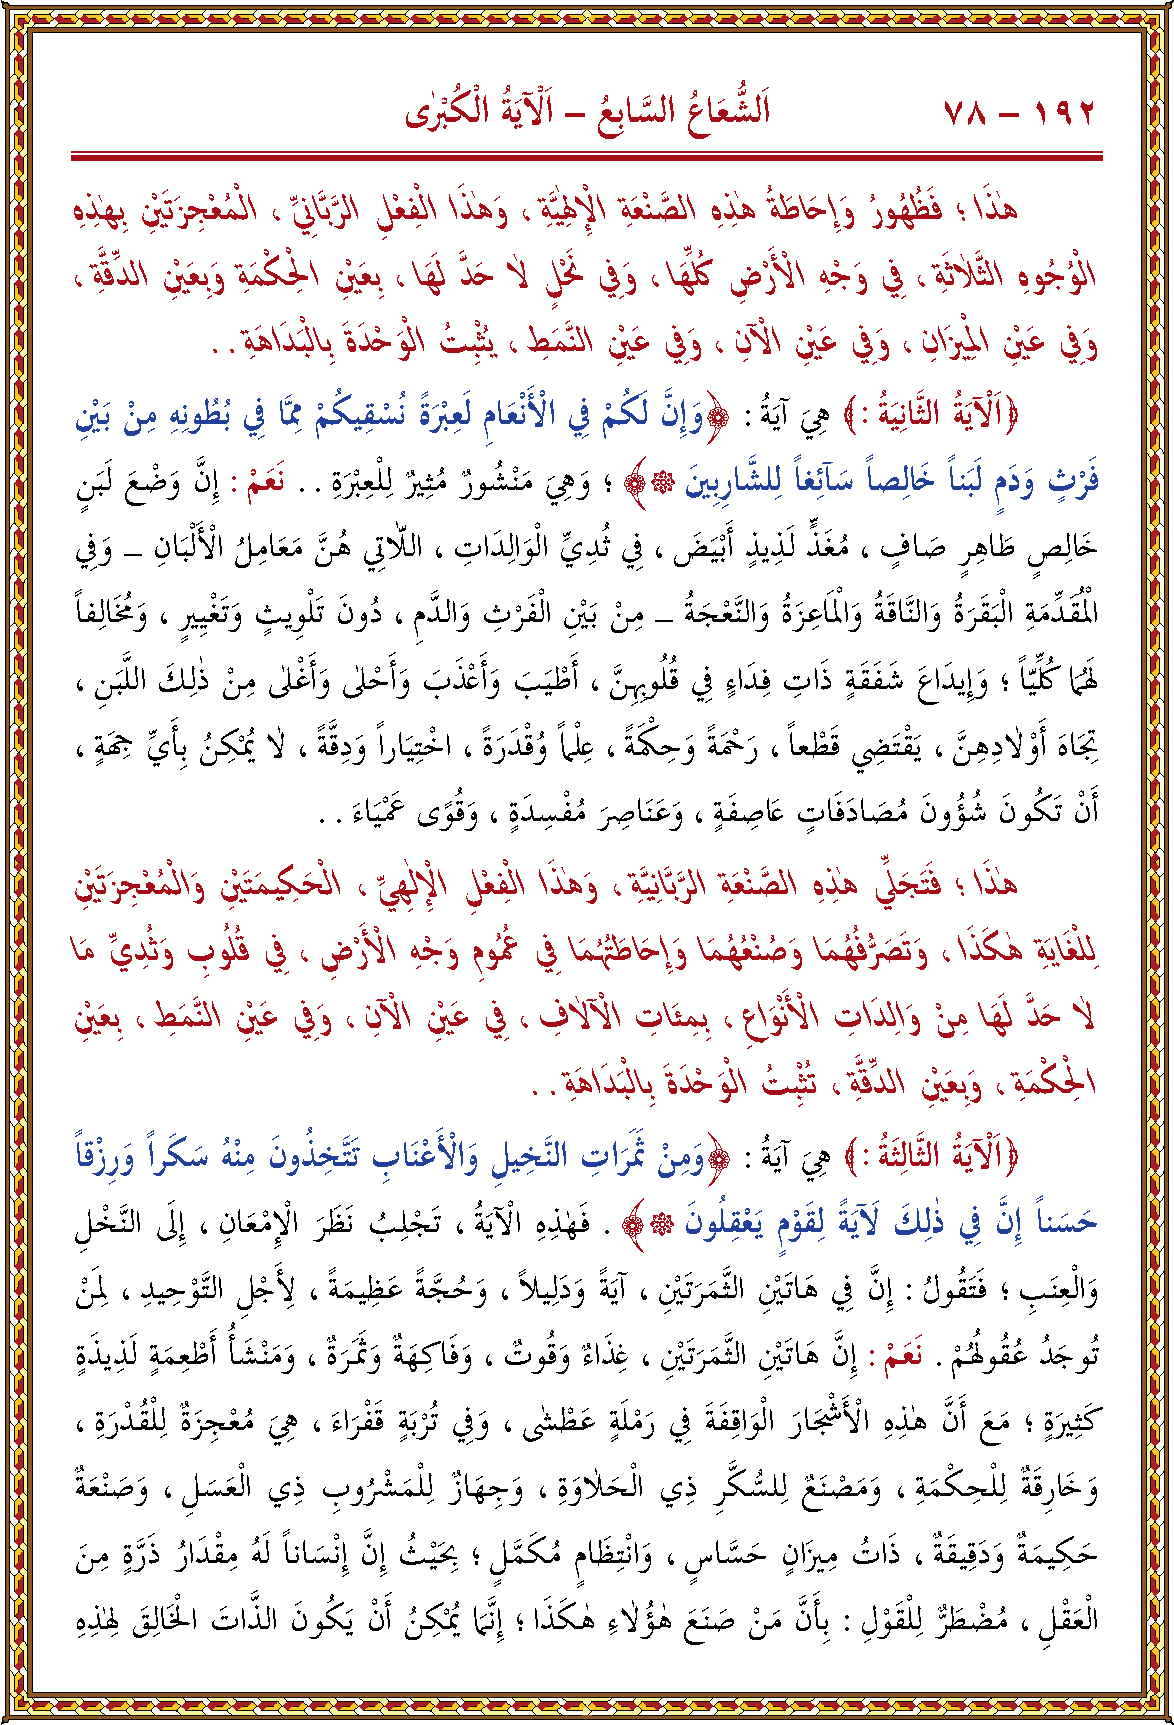 ١٩٢ – ٧٨ اَلشُّعَاعُ السَّابِعُ – اَلْآيَةُ الْكُبْرٰى
هٰذَا ؛ فَظُهُورُ وَإِحَاطَةُ هٰذِهِ الصَّنْعَةِ الْإِلٰهِيَّةِ ، وَهٰذَا الْفِعْلِ الرَّبَّانِيِّ ، الْمُعْجِزَتَيْنِ بِهٰذِهِ
الْوُجُوهِ الثَّلَاثَةِ ، فِي وَجْهِ الْأَرْضِ كُلِّهَا ، وَفِي نَحْلٍ لَا حَدَّ لَهَا ، بِعَيْنِ الْحِكْمَةِ وَبِعَيْنِ الدِّقَّةِ ،
وَفِي عَيْنِ الْمِيْزَانِ ، وَفِي عَيْنِ الْآنِ ، وَفِي عَيْنِ النَّمَطِ ، يُثْبِتُ الْوَحْدَةَ بِالْبَدَاهَةِ . .
﴿اَلْآيَةُ الثَّانِيَةُ :﴾ هِيَ آيَةُ : ﴿وَإِنَّ لَكُمْ فِي الْأَنْعَامِ لَعِبْرَةً نُسْقِيكُمْ مِمَّا فِي بُطُونِهِ مِنْ بَيْنِ
فَرْثٍ وَدَمٍ لَبَناً خَالِصاً سَآئِغاً لِلشَّارِبِينَ ۞﴾ ؛ وَهِيَ مَنْشُورٌ مُثِيرٌ لِلْعِبْرَةِ . . نَعَمْ : إِنَّ وَضْعَ لَبَنٍ
خَالِصٍ طَاهِرٍ صَافٍ ، مُغَذٍّ لَذِيذٍ أَبْيَضَ ، فِي ثُدِيِّ الْوَالِدَاتِ ، اللَّاتِي هُنَّ مَعَامِلُ الْأَلْبَانِ – وَفِي
الْمُقَدِّمَةِ الْبَقَرَةُ وَالنَّاقَةُ وَالْمَاعِزَةُ وَالنَّعْجَةُ – مِنْ بَيْنِ الْفَرْثِ وَالدَّمِ ، دُونَ تَلْوِيثٍ وَتَغْيِيرٍ ، وَمُخَالِفاً
لَهُمَا كُلِّيّاً ؛ وَإِيدَاعَ شَفَقَةٍ ذَاتِ فِدَاءٍ فِي قُلُوبِهِنَّ ، أَطْيَبَ وَأَعْذَبَ وَأَحْلٰى وَأَغْلٰى مِنْ ذٰلِكَ اللَّبَنِ ،
تِجَاهَ أَوْلَادِهِنَّ ، يَقْتَضِي قَطْعاً ، رَحْمَةً وَحِكْمَةً ، عِلْماً وُقْدَرَةً ، اخْتِيَاراً وَدِقَّةً ، لَا يُمْكِنُ بِأَيِّ جِهَةٍ ،
أَنْ تَكُونَ شُؤُونَ مُصَادَفَاتٍ عَاصِفَةٍ ، وَعَنَاصِرَ مُفْسِدَةٍ ، وَقُوًى عَمْيَاءَ . .
هٰذَا ؛ فَتَجَلِّي هٰذِهِ الصَّنْعَةِ الرَّبَّانِيَّةِ ، وَهٰذَا الْفِعْلِ الْإِلٰهِيِّ ، الْحَكِيمَتَيْنِ وَالْمُعْجِزَتَيْنِ
لِلْغَايَةِ هٰكَذَا ، وَتَصَرُّفُهُمَا وَصُنْعُهُمَا وَإِحَاطَتُهُمَا فِي عُمُومِ وَجْهِ الْأَرْضِ ، فِي قُلُوبِ وَثُدِيِّ مَا
لَا حَدَّ لَهَا مِنْ وَالِدَاتِ الْأَنْوَاعِ ، بِمِئَاتِ الْآلَافِ ، فِي عَيْنِ الْآنِ ، وَفِي عَيْنِ النَّمَطِ ، بِعَيْنِ
الْحِكْمَةِ ، وَبِعَيْنِ الدِّقَّةِ ، تُثْبِتُ الْوَحْدَةَ بِالْبَدَاهَةِ . .
﴿اَلْآيَةُ الثَّالِثَةُ :﴾ هِيَ آيَةُ : ﴿وَمِنْ ثَمَرَاتِ النَّخِيلِ وَالْأَعْنَابِ تَتَّخِذُونَ مِنْهُ سَكَراً وَرِزْقاً
حَسَناً إِنَّ فِي ذٰلِكَ لَآيَةً لِقَوْمٍ يَعْقِلُونَ ۞﴾ . فَهٰذِهِ الْآيَةُ ، تَجْلِبُ نَظَرَ الْإِمْعَانِ ، إِلَى النَّخْلِ
وَالْعِنَبِ ؛ فَتَقُولُ : إِنَّ فِي هَاتَيْنِ الثَّمَرَتَيْنِ ، آيَةً وَدَلِيلاً ، وَحُجَّةً عَظِيمَةً ، لِأَجْلِ التَّوْحِيدِ ، لِمَنْ
تُوجَدُ عُقُولُهُمْ . نَعَمْ : إِنَّ هَاتَيْنِ الثَّمَرَتَيْنِ ، غِذَاءٌ وَقُوتٌ ، وَفَاكِهَةٌ وَثَمَرَةٌ ، وَمَنْشَأُ أَطْعِمَةٍ لَذِيذَةٍ
كَثِيرَةٍ ؛ مَعَ أَنَّ هٰذِهِ الْأَشْجَارَ الْوَاقِفَةَ فِي رَمْلَةٍ عَطْشٰى ، وَفِي تُرْبَةٍ قَفْرَاءَ ، هِيَ مُعْجِزَةٌ لِلْقُدْرَةِ ،
وَخَارِقَةٌ لِلْحِكْمَةِ ، وَمَصْنَعٌ لِلسُّكَّرِ ذِي الْحَلَاوَةِ ، وَجِهَازٌ لِلْمَشْرُوبِ ذِي الْعَسَلِ ، وَصَنْعَةٌ
حَكِيمَةٌ وَدَقِيقَةٌ ، ذَاتُ مِيزَانٍ حَسَّاسٍ ، وَانْتِظَامٍ مُكَمَّلٍ ؛ بِحَيْثُ إِنَّ إِنْسَاناً لَهُ مِقْدَارُ ذَرَّةٍ مِنَ
الْعَقْلِ ، مُضْطَرٌّ لِلْقَوْلِ : بِأَنَّ مَنْ صَنَعَ هٰؤُلَاءِ هٰكَذَا ؛ إِنَّمَا يُمْكِنُ أَنْ يَكُونَ الذَّاتَ الْخَالِقَ لِهٰذِهِ